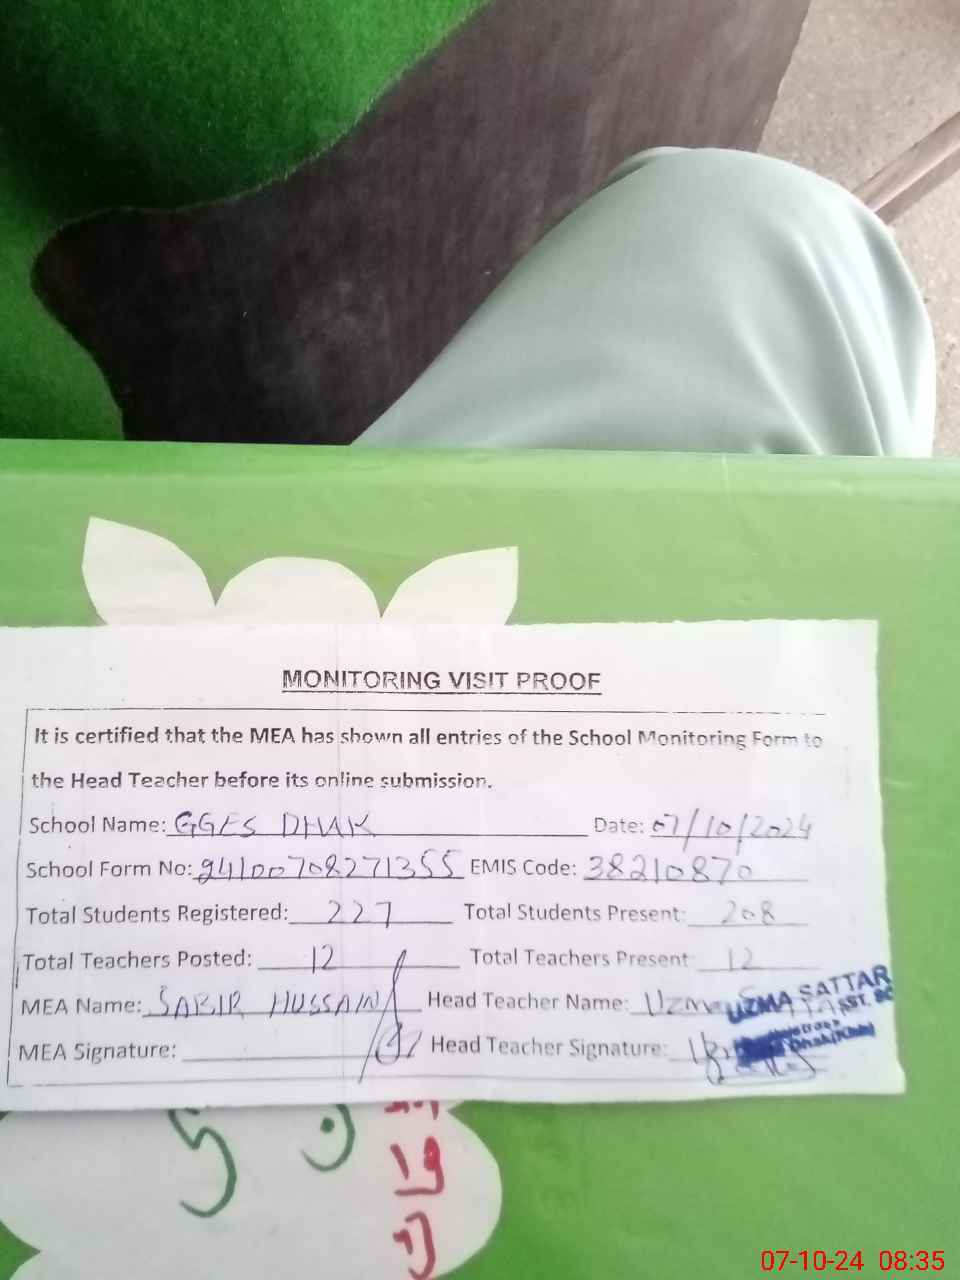 MONITORING VISIT PROOF
It is certified that the MEA has shown all entries of the School Monitoring Form to
the Head Teacher before its online submission.
School Name: GGES DHUK Date: 07/10/2024
School Form No: 24100708271355 EMIS Code: 38210870
Total Students Registered: 227 Total Students Present: 208
Total Teachers Posted: 12 Total Teachers Present: 12
MEA Name: SABIR HUSSAIN Head Teacher Name: Uzma
UZMA SATTAR
SST.
MEA Signature: Head Teacher Signature:
07-10-24 08:35